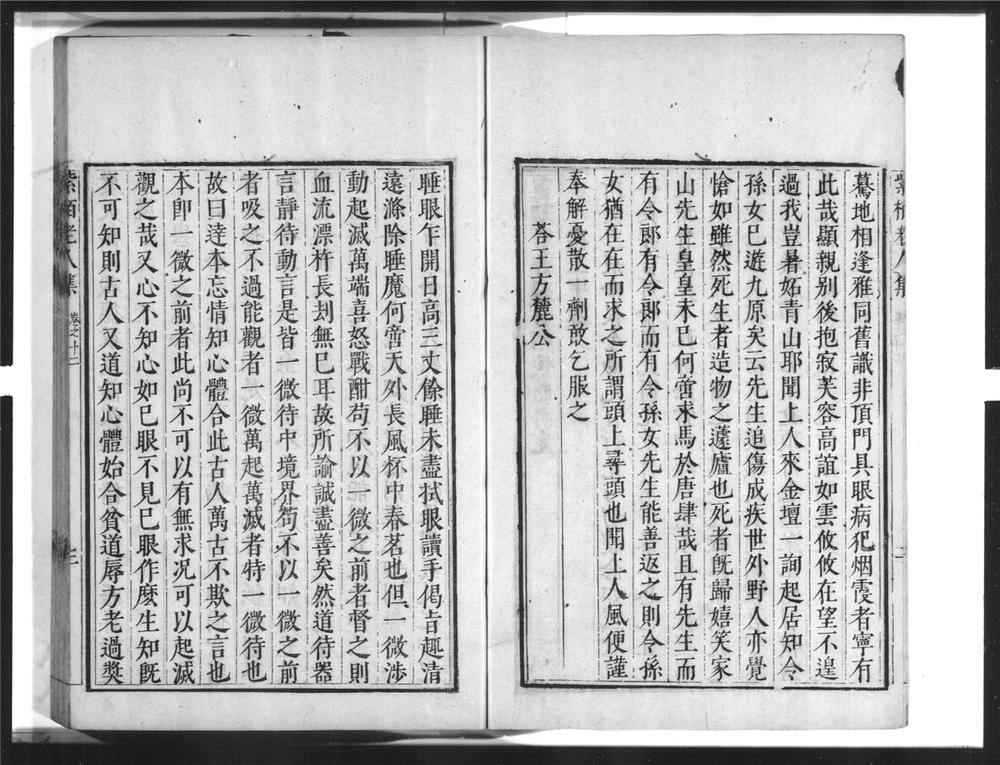 驀地相逢雅同舊識非頂門具眼病犯烟霞者寧有
此哉顯親別後抱寂芙容高誼如雲攸攸在望不遑
過我豈暑妬青山耶聞上人來金壇一詢起居知令
孫女已遊九原矣云先生追傷成疾世外野人亦覺
愴如雖然死生者造物之蘧廬也死者旣歸嬉笑家
山先生皇皇未已何啻求馬於唐肆哉且有先生而
有令郎有令郎而有令孫女先生能善返之則令孫
女猶在在而求之所謂頭上尋頭也聞上人風便謹
奉解憂散一劑敢乞服之
荅王方麓公
睡眼乍開日高三丈餘睡未盡拭眼讀手偈旨趣清
遠滌除睡魔何啻天外長風杯中春茗也但一微涉
動起滅萬端喜怒戰酣苟不以一微之前者督之則
血流漂杵長刦無已耳故所諭誠盡善矣然道待器
言靜待動言是皆一微待中境界苟不以一微之前
者吸之不過能觀者一微萬起萬滅者特一微待也
故曰達本忘情知心體合此古人萬古不欺之言也
本卽一微之前者此尚不可以有無求况可以起滅
觀之哉又心不知心如已眼不見已眼作麽生知旣
不可知則古人又道知心體始合貧道辱方老過獎
紫栢老人集 卷之十二